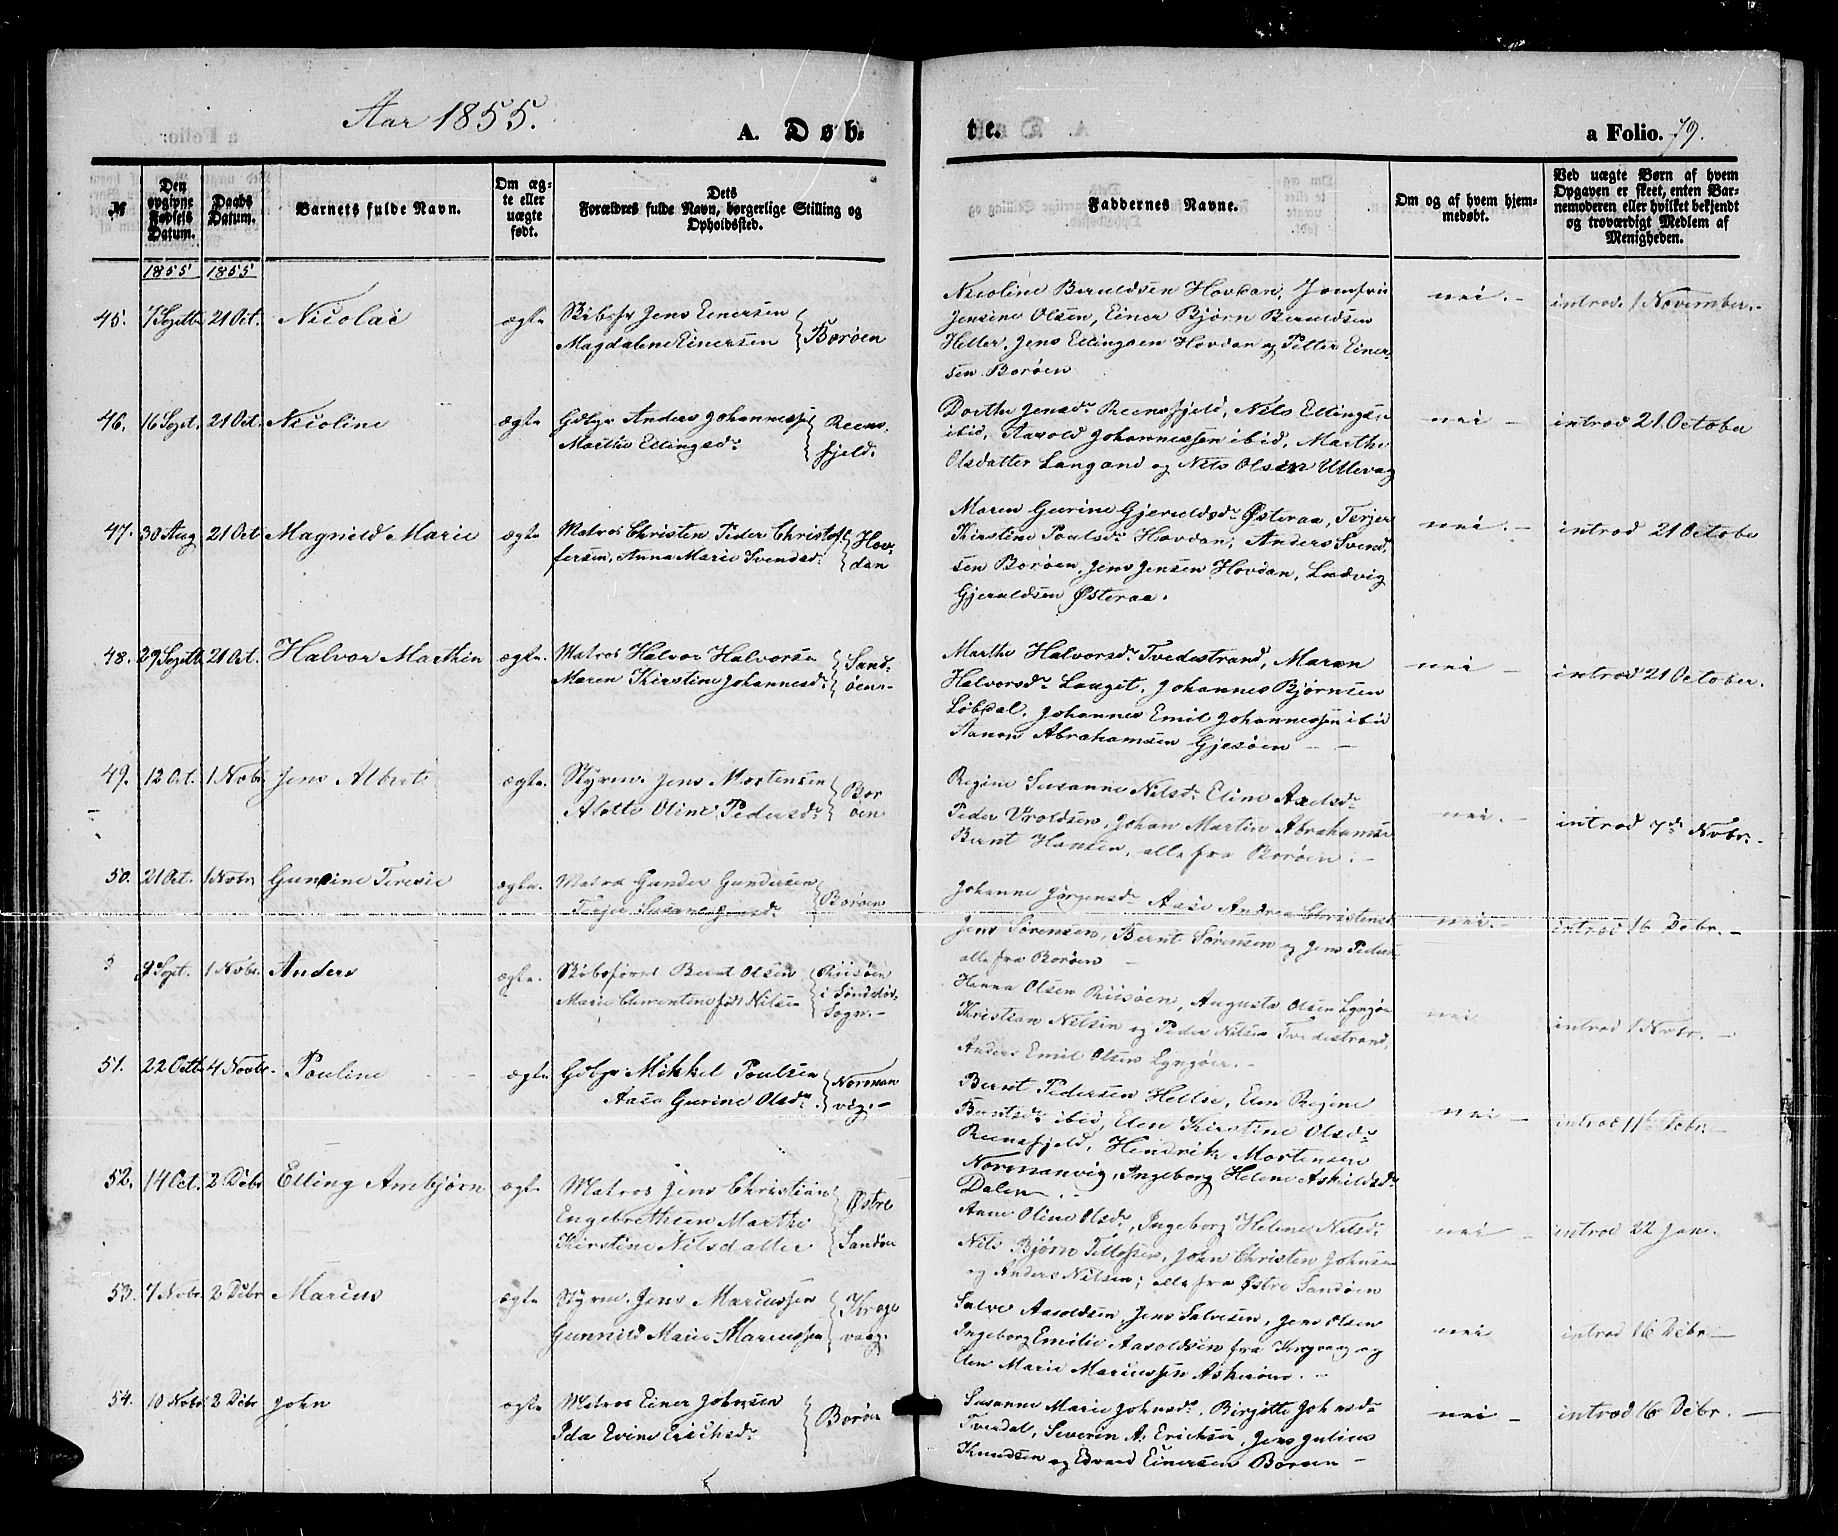 Aar 1855.
A. Døb-
te.
a Folio. 79.
№
Den opgivne Fødsels Datum.
Daabs Datum.
Barnets fulde Navn.
Om ægte eller uægte født.
Dets
Forældres fulde Navn, borgerlige Stilling og
Opholdssted.
Faddernes Navne.
Om og af hvem hjem-
medøbt.
Ved uægte Børn af hvem
Opgaven er skeet, enten Bar-
nemoderen eller hvilket bekjendt
og troværdigt Medlem af
Menigheden.
1855 1855
45. 7 Septb 21 Oct. Nicolai ægte Skibsfr Jens Einersen
Magdalene Einersen } Borøen
Nicoline Beruldsen Hovdan, Jomfru
Jensine Olsen, Einer Bjørn Beruldsen
Helter, Jens Ellingsen Hovdan og Petter Einer-
sen Borøen
nei. - introd. 1 November. -
46. 16 Sept. 21 Oct. Nicoline ægte Gdbgr Anders Johannessen
Marthe Ellingsdr } Reens-
fjeld.
Dorthe Jensdr Reensfjeld, Nils Ellingsen
ibid, Aasold Johannessen ibid, Marthe
Olsdatter Langand og Nils Olsen Utlevag
nei - introd 21 October
47. 30 Aug 21 Oct Magnild Marie ægte Matros Christen Peder Christof-
fersen, Anna Marie Svendsdr } Hov-
dan
Maren Gurine Gjeruldsdr Østeraa, Terjer
Kirstine Poulsdr Hovdan, Anders Svend-
sen Borøen, Jens Jensen Hovdan, Ludvig
Gjeruldsen Østeraa.
nei. - introd 21 Octobe
48. 29 Septb 21 Oct. Halvor Marthin ægte. Matros Halvor Halvorsen
Maren Kirstine Johannesdr } Sand-
øen -
Marthe Halvorsdr Tvedestrand, Maren
Halvorsdr Lauget, Johannes Bjørnsen
Løbdal, Johannes Emil Johannessen ibid
Aanon Abrahamsen Gjesøen - -
nei - introd 21 October.
49. 12 Oct. 1 Nobr Jens Albert ægte. Styrm. Jens Mortensen
Alette Oline Pedersdr } Bor
øen
Regine Susanne Nilsdr Eline Axelsdr
Peder Uroldsen, Johan Martin Abrahamsen
Bernt Hansen, alle fra Borøen. -
nei. - introd 7d Nvbr. -
50. 21 Oct. 1 Nobr Gunine Teresie ægte. Matros Gunder Gundersen
Terjer Susane Jensdr } Borøen
Johanne Jørgensdr Aase Andrea Christensdr
Jens Sørensen, Bernt Sørensen og Jens Pedersen
alle fra Borøen -
nei. - introd 16 Debr. -
9 Sept. 1 Nvbr. Anders ægte. Skibsfører Bernt Olsen
Marie Clementine født Nilsen } Riisøen
i Søndeløv
Sogn. -
Hanna Olsen Riisøen, Augusta Olsen Lyngøer
Christian Nilsen og Peder Nilsen Tvedestrand,
Anders Emil Olsen Lyngøer. -
nei introd 1 Nvbr. -
51. 22 Octb 4 Novbr. Pouline ægte Gdbgr Mikkel Poulsen
Aase Gurine Olsdr } Norman
vig. -
Bernt Pedersen Helle, Elen Regine
Berntsdr ibid, Elen Kirstine Olsdr
Reensfjeld, Hendrik Mortensen
Normanvig, Ingeborg Helene Askildsdr
Dalen. -
nei - introd 11te Debr. -
52. 14 Oct. 2 Debr Elling Ambjørn ægte Matros Jens Christian
Engebrethsen Marthe
Kirstine Nilsdatter } Østre
Sandøen
Anne Oline Olsdr, Ingeborg Helene Nilsdr
Nils Bjørn Tellefsen, John Christen Johnsen
og Anders Nilsen; alle fra Østre Sandøen
nei - introd 22 Jan.
53. 7 Nobr. 2 Debr Marius ægte Styrm. Jens Mariussen
Gunnild Marie Mariussen } Krage
vaag.
Salve Aasoldsen, Jens Salvesen, Jens Olsen
Ingeborg Emilie Aasoldsen fra Kragvaag og
Elen Marie Mariussen Askerøen. -
nei introd 16 Debr. -
54. 10 Nobr. 2 Debr John ægte Matros Einer Johnsen
Ida Evine Erichsdr } Borøen
Susanne Marie Johnsdr, Birgitte Johnsdr
Tverdal, Severin A. Erichsen, Jens Julius
Knudsen og Edvard Einersen Borøen -
nei - introd 16 Debr. -